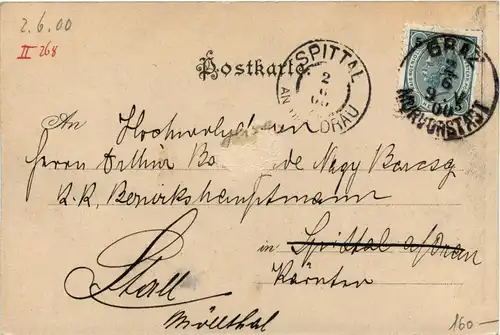 2.6.00
II 268
Postkarte.
SPITTAL
2
6
00
AN DER DRAU
GRAZ
00
MURVORSTADT
An Hochwohlgeboren
Herrn Arthur de Nagy
K.K. Bezirkshauptmann
in Spittal a/Drau
Kärnten
Stall
Möllthal
160-